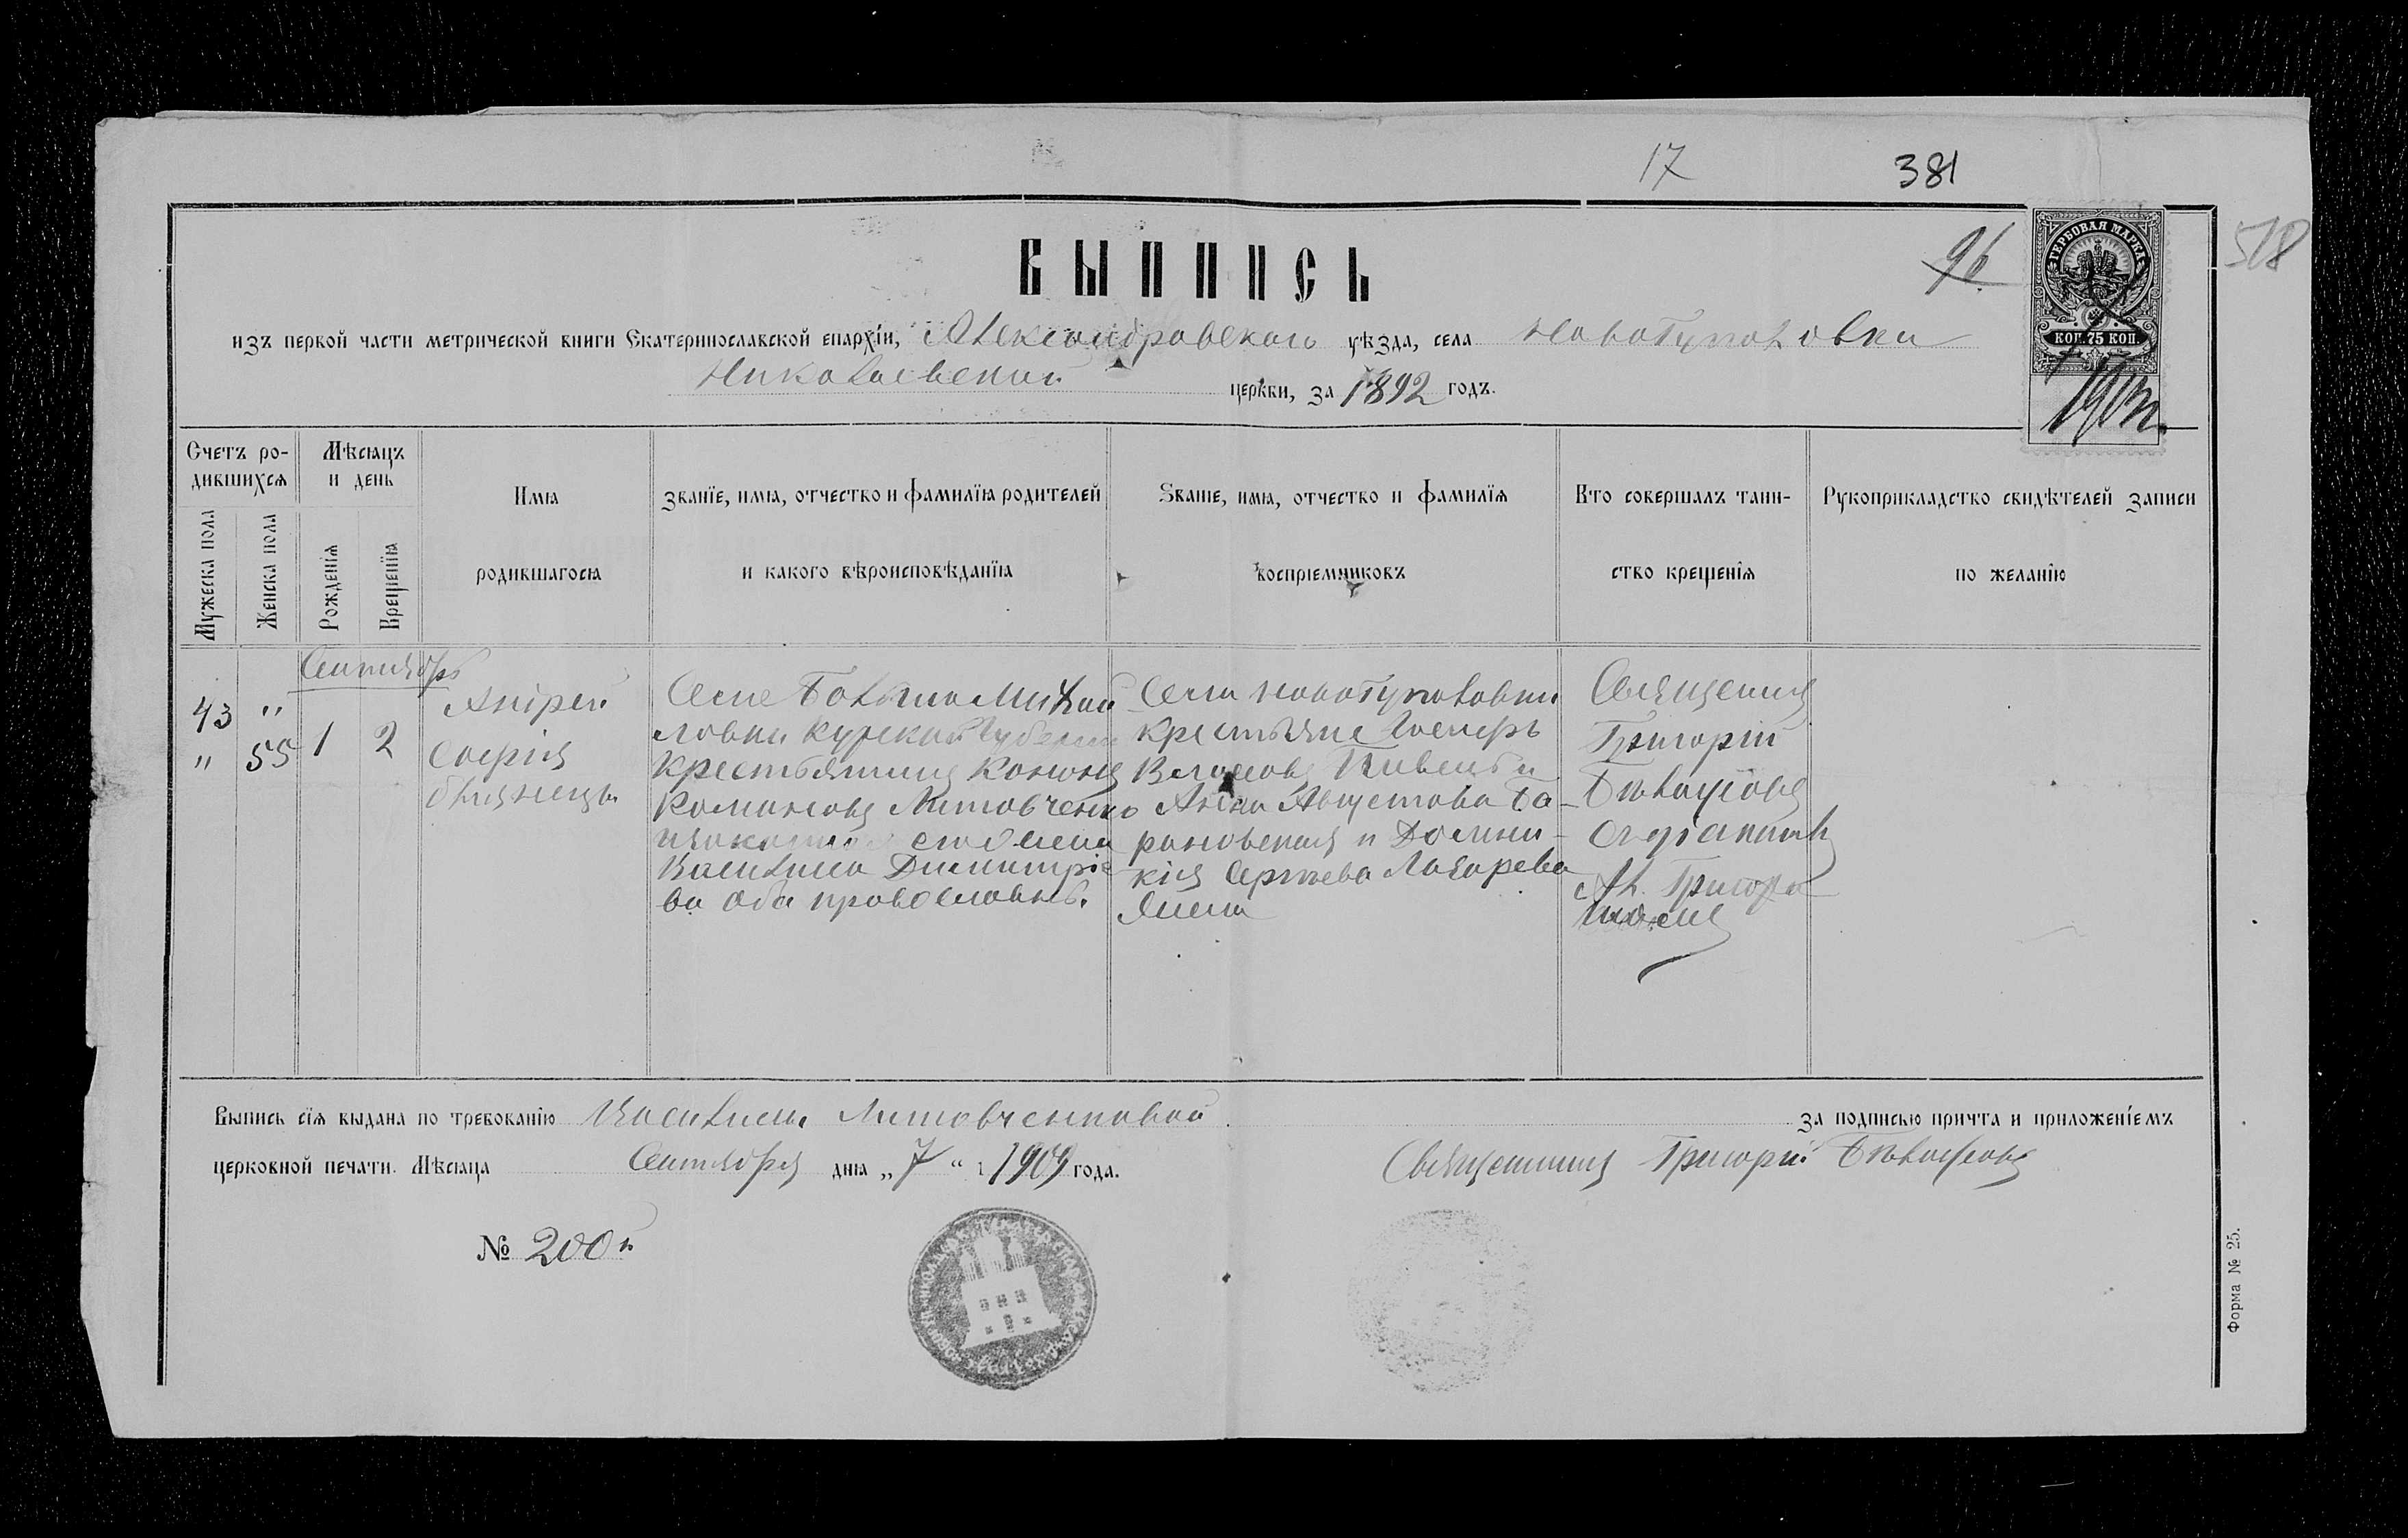 17
381
96
518
ГЕРБОВАЯ МАРКА
КОП. 75 КОП.
ВЫПИСЬ
изъ первой части метрической книги Екатеринославской епархіи, Александровскаго уѣзда, села Новотуполовки
Николаевской церкви, за 1892 годъ.
Счетъ ро-
дившихся
Мужеска пола
Женска пола
Мѣсяцъ
и день
Рожденія
Крещенїя
Имя
родившагося
Званїе, имя, отчество и фамилїя родителей
и какого вѣроисповѣданїя
Званіе, имя, отчество и фамилїя
воспріемниковъ
Кто совершалъ таин-
ство крещенія
Рукоприкладство свидѣтелей записи
по желанію
Сентябрь
43 "
" 55
1 2
Андрей
Софія
близнецы
Села Михай
ловки Курской Губерніи
Крестьянинъ Кононъ
Романовъ Литовченко
и законная его жена
Василиса Димитріе
ва оба православные.
Села Новотуполовки
Крестьяне
и
Анна Августова Ба-
рановская и Домни-
кія Сергѣева Лазарева
Священникъ
Григорій
Бѣлоусовъ
съ псаломщ
Григорі
Выпись сія выдана по требованію Василисы Литовченковой за подписью причта и приложеніемъ
церковной печати. Мѣсяца Сентября дня „7“ 1909 года.
Священникъ Григорій Бѣлоусовъ
№ 200
Форма № 25.